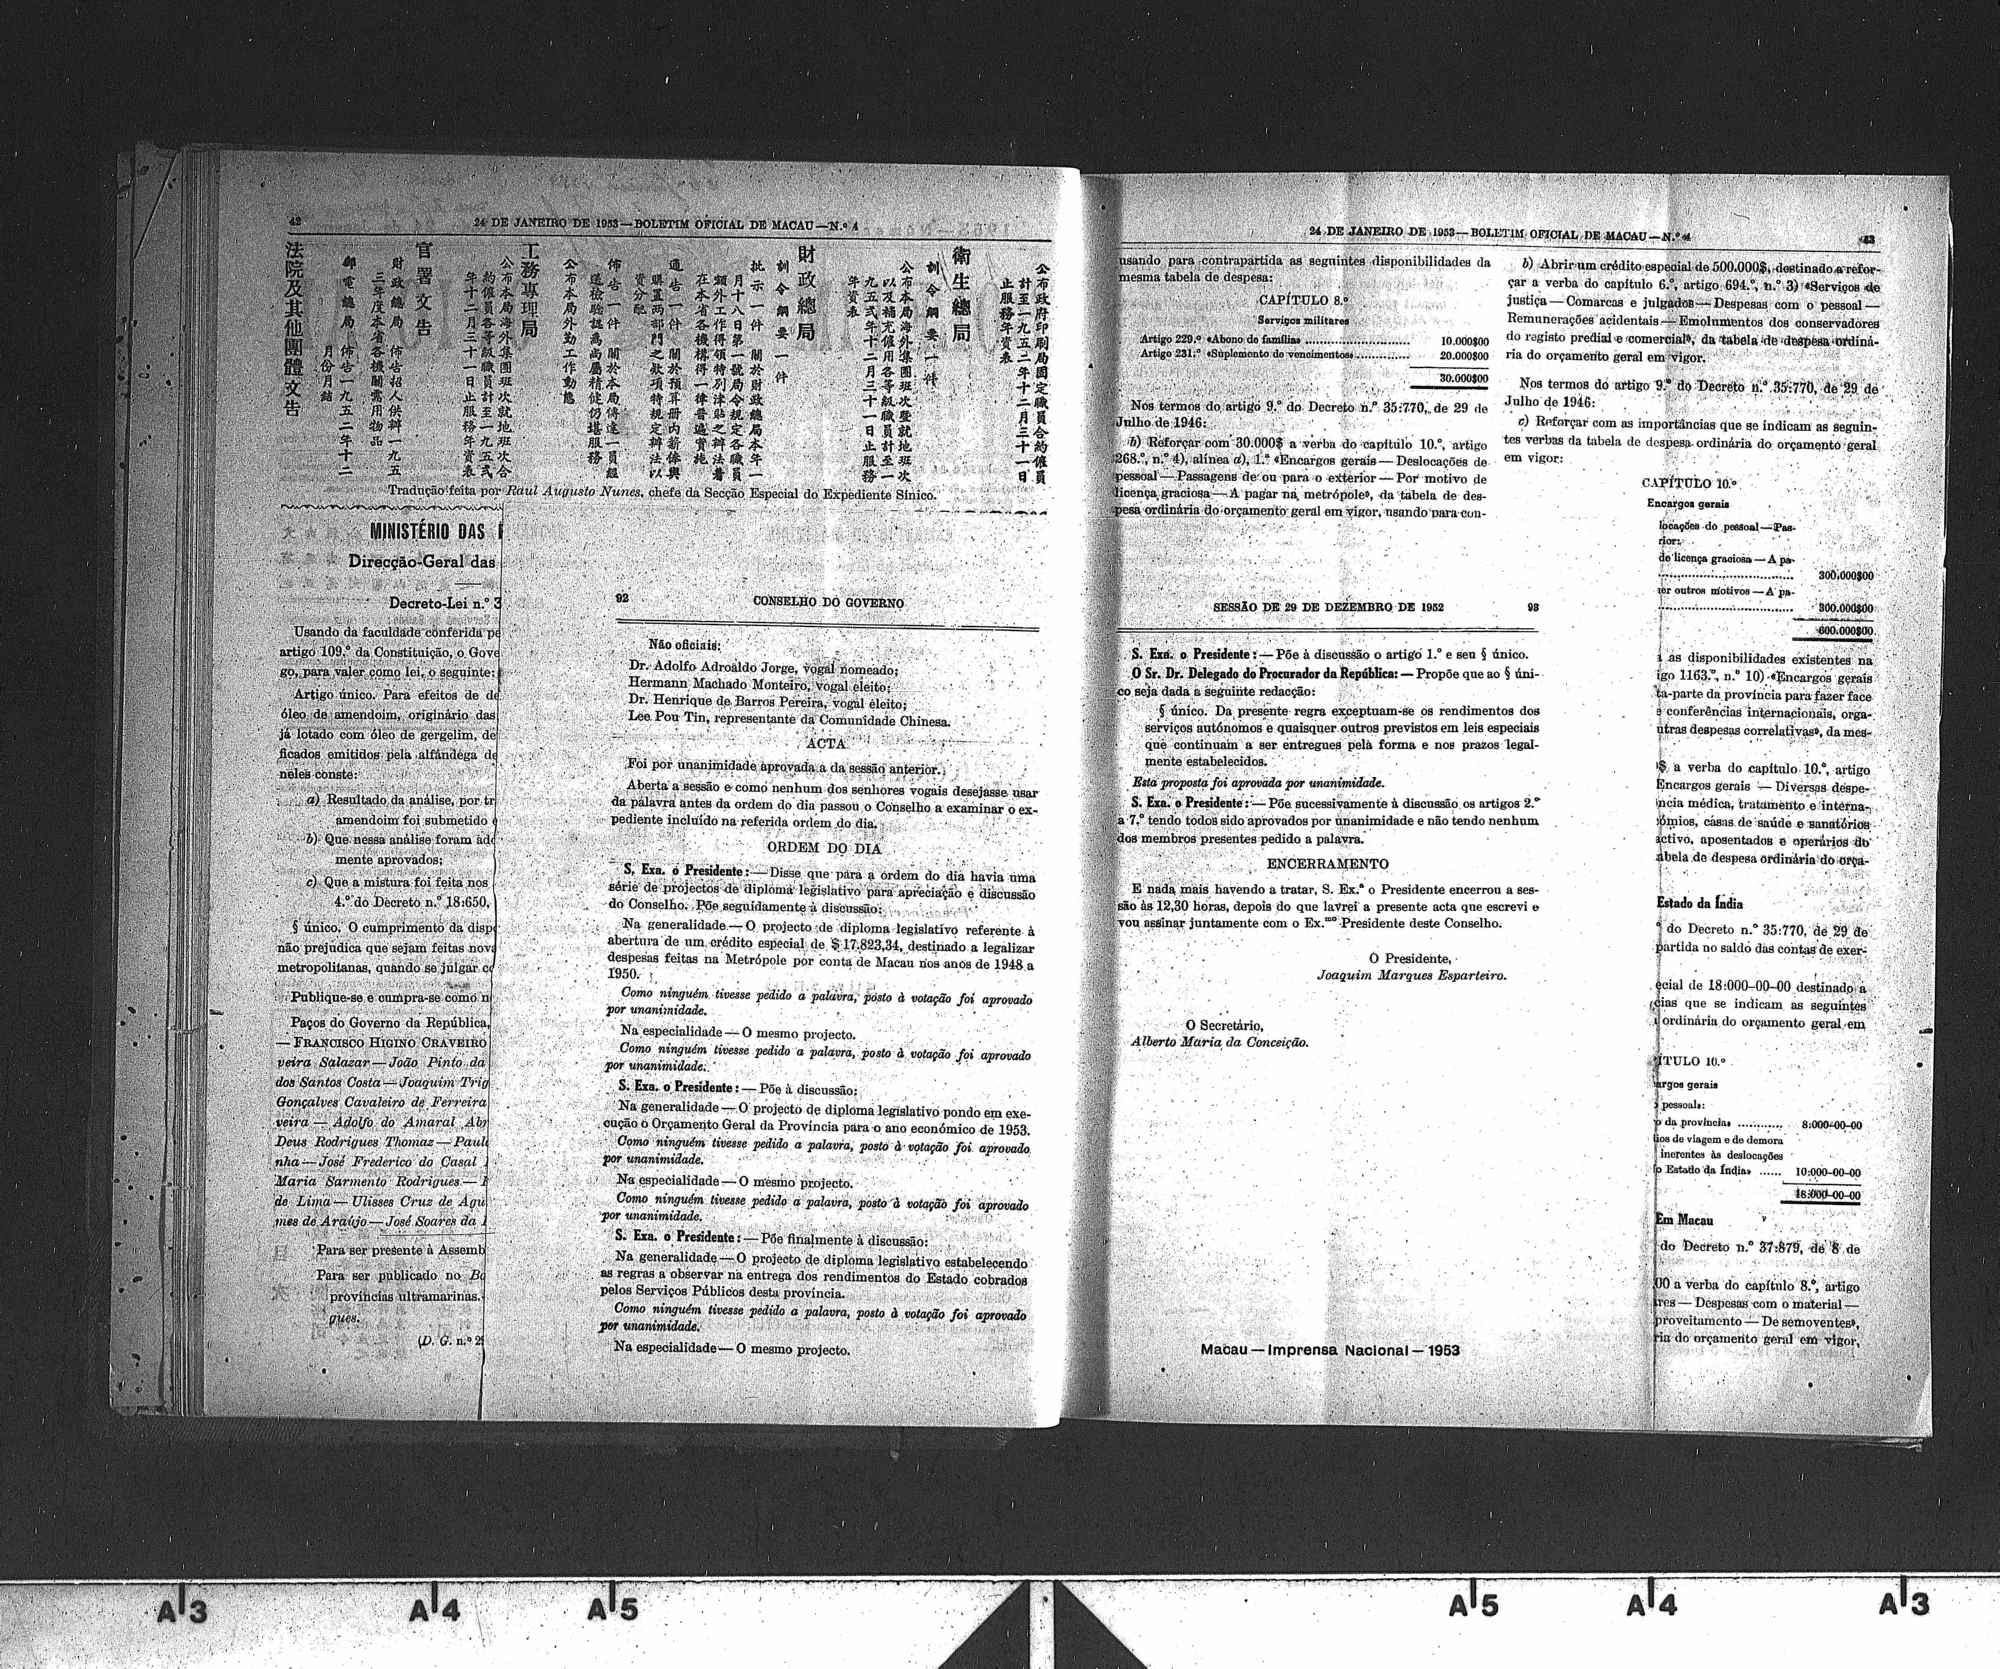 42
24 DE JANEIRO DE 1953—BOLETIM OFICIAL DE MACAU—N.º 4
公布政府印刷局固定職員合約僱員
計至一九五二年十二月三十一日
止服務年資表
衛生總局
訓令綱要一件
公布本局海外集團班次暨就地班次
以及補充僱用各等級職員計至一
九五弍年十二月三十一日止服務
年資表
財政總局
訓令綱要一件
批示一件 關於財政總局本年一
月十八日第一號局令規定各職員
額外工作得領特別津貼之辦法着
在本省各機構得一律普遍實施
通告一件 關於預算册内薪俸與
購置兩部門之款項特規定辦法以
資分配
佈告一件 關於本局傳達一員經
送檢驗認為尚屬精健仍堪服務
公布本局外勤工作動態
工務專理局
公布本局海外集團班次就地班次合
約僱員各等級職員計至一九五弍
年十二月三十一日止服務年資表
官署文告
財政總局 佈告招人供辦一九五
三年度本省各機關需用物品
郵電總局 佈告一九五二年十二
月份月結
法院及其他團體文告
Tradução feita por Raul Augusto Nunes, chefe da Secção Especial do Expediente Sínico.
MINISTÉRIO DAS
Direcção-Geral das
Decreto-Lei n.º 3
Usando da faculdade conferida pe
artigo 109.º da Constituição, o Gove
go, para valer como lei, o seguinte:
Artigo único. Para efeitos de de
óleo de amendoim, originário das
já lotado com óleo de gergelim, de
ficados emitidos pela alfândega de
neles conste:
a) Resultado da análise, por tr
amendoim foi submetido
b) Que nessa análise foram ad
mente aprovados;
c) Que a mistura foi feita nos
4.º do Decreto n.º 18:650,
§ único. O cumprimento da disp
não prejudica que sejam feitas nova
metropolitanas, quando se julgar c
Publique-se e cumpra-se como n
Paços do Governo da República,
— FRANCISCO HIGINO CRAVEIRO
veira Salazar — João Pinto da
dos Santos Costa — Joaquim Trig
Gonçalves Cavaleiro de Ferreira
veira — Adolfo do Amaral Abr
Deus Rodrigues Thomaz — Paul
nha — José Frederico do Casal
Maria Sarmento Rodrigues —
de Lima — Ulisses Cruz de Agu
mes de Araújo — José Soares da
Para ser presente à Assemb
Para ser publicado no Bo
províncias ultramarinas.
gues.
(D. G. n.º 2
92
CONSELHO DO GOVERNO
Não oficiais:
Dr. Adolfo Adroaldo Jorge, vogal nomeado;
Hermann Machado Monteiro, vogal eleito;
Dr. Henrique de Barros Pereira, vogal eleito;
Lee Pou Tin, representante da Comunidade Chinesa.
ACTA
Foi por unanimidade aprovada a da sessão anterior.
Aberta a sessão e como nenhum dos senhores vogais desejasse usar
da palavra antes da ordem do dia passou o Conselho a examinar o ex-
pediente incluído na referida ordem do dia.
ORDEM DO DIA
S. Exa. o Presidente: — Disse que para a ordem do dia havia uma
série de projectos de diploma legislativo para apreciação e discussão
do Conselho. Põe seguidamente à discussão:
Na generalidade — O projecto de diploma legislativo referente à
abertura de um crédito especial de $ 17.823,34, destinado a legalizar
despesas feitas na Metrópole por conta de Macau nos anos de 1948 a
1950.
Como ninguém tivesse pedido a palavra, posto à votação foi aprovado
por unanimidade.
Na especialidade — O mesmo projecto.
Como ninguém tivesse pedido a palavra, posto à votação foi aprovado
por unanimidade.
S. Exa. o Presidente: — Põe à discussão:
Na generalidade — O projecto de diploma legislativo pondo em exe-
cução o Orçamento Geral da Província para o ano económico de 1953.
Como ninguém tivesse pedido a palavra, posto à votação foi aprovado
por unanimidade.
Na especialidade — O mesmo projecto.
Como ninguém tivesse pedido a palavra, posto à votação foi aprovado
por unanimidade.
S. Exa. o Presidente: — Põe finalmente à discussão:
Na generalidade — O projecto de diploma legislativo estabelecendo
as regras a observar na entrega dos rendimentos do Estado cobrados
pelos Serviços Públicos desta província.
Como ninguém tivesse pedido a palavra, posto à votação foi aprovado
por unanimidade.
Na especialidade — O mesmo projecto.
24 DE JANEIRO DE 1953—BOLETIM OFICIAL DE MACAU—N.º 4
43
usando para contrapartida as seguintes disponibilidades da
mesma tabela de despesa:
CAPÍTULO 8.º
Serviços militares
Artigo 229.º «Abono de família» ............ 10.000$00
Artigo 231.º «Suplemento de vencimentos» ............ 20.000$00
30.000$00
Nos termos do artigo 9.º do Decreto n.º 35:770, de 29 de
Julho de 1946:
b) Reforçar com 30.000$ a verba do capítulo 10.º, artigo
268.º, n.º 4), alínea a), 1.º «Encargos gerais — Deslocações de
pessoal — Passagens de ou para o exterior — Por motivo de
licença graciosa — A pagar na metrópole», da tabela de des-
pesa ordinária do orçamento geral em vigor, usando para con-
b) Abrir um crédito especial de 500.000$, destinado a refor-
çar a verba do capítulo 6.º, artigo 694.º, n.º 3) «Serviços de
justiça — Comarcas e julgados — Despesas com o pessoal —
Remunerações acidentais — Emolumentos dos conservadores
do registo predial e comercial», da tabela de despesa ordiná-
ria do orçamento geral em vigor.
Nos termos do artigo 9.º do Decreto n.º 35:770, de 29 de
Julho de 1946:
c) Reforçar com as importâncias que se indicam as seguin-
tes verbas da tabela de despesa ordinária do orçamento geral
em vigor:
CAPÍTULO 10.º
Encargos gerais
locações do pessoal — Pas-
rior:
de licença graciosa — A pa-
............ 300.000$00
por outros motivos — A pa-
............ 300.000$00
600.000$00
as disponibilidades existentes na
igo 1163.º, n.º 10) «Encargos gerais
ta-parte da província para fazer face
e conferências internacionais, orga-
utras despesas correlativas», da mes-
$ a verba do capítulo 10.º, artigo
Encargos gerais — Diversas despe-
ncia médica, tratamento e interna-
ómios, casas de saúde e sanatórios
activo, aposentados e operários do
abela de despesa ordinária do orça-
Estado da Índia
º do Decreto n.º 35:770, de 29 de
partida no saldo das contas de exer-
ecial de 18:000–00–00 destinado a
cias que se indicam as seguintes
ordinária do orçamento geral em
ÍTULO 10.º
argos gerais
pessoal»:
o da província» ............ 8:000–00–00
ios de viagem e de demora
inerentes às deslocações
o Estado da Índia» ...... 10:000–00–00
18:000–00–00
Em Macau
do Decreto n.º 37:879, de 8 de
00 a verba do capítulo 8.º, artigo
res — Despesas com o material —
proveitamento — De semoventes»,
ria do orçamento geral em vigor,
SESSÃO DE 29 DE DEZEMBRO DE 1952
93
S. Exa. o Presidente: — Põe à discussão o artigo 1.º e seu § único.
O Sr. Dr. Delegado do Procurador da República: — Propõe que ao § úni-
co seja dada a seguinte redacção:
§ único. Da presente regra exceptuam-se os rendimentos dos
serviços autónomos e quaisquer outros previstos em leis especiais
que continuam a ser entregues pela forma e nos prazos legal-
mente estabelecidos.
Esta proposta foi aprovada por unanimidade.
S. Exa. o Presidente: — Põe sucessivamente à discussão os artigos 2.º
a 7.º tendo todos sido aprovados por unanimidade e não tendo nenhum
dos membros presentes pedido a palavra.
ENCERRAMENTO
E nada mais havendo a tratar, S. Ex.ª o Presidente encerrou a ses-
são às 12,30 horas, depois do que lavrei a presente acta que escrevi e
vou assinar juntamente com o Ex.mo Presidente deste Conselho.
O Presidente,
Joaquim Marques Esparteiro.
O Secretário,
Alberto Maria da Conceição.
Macau — Imprensa Nacional — 1953
A3
A4
A5
A5
A4
A3